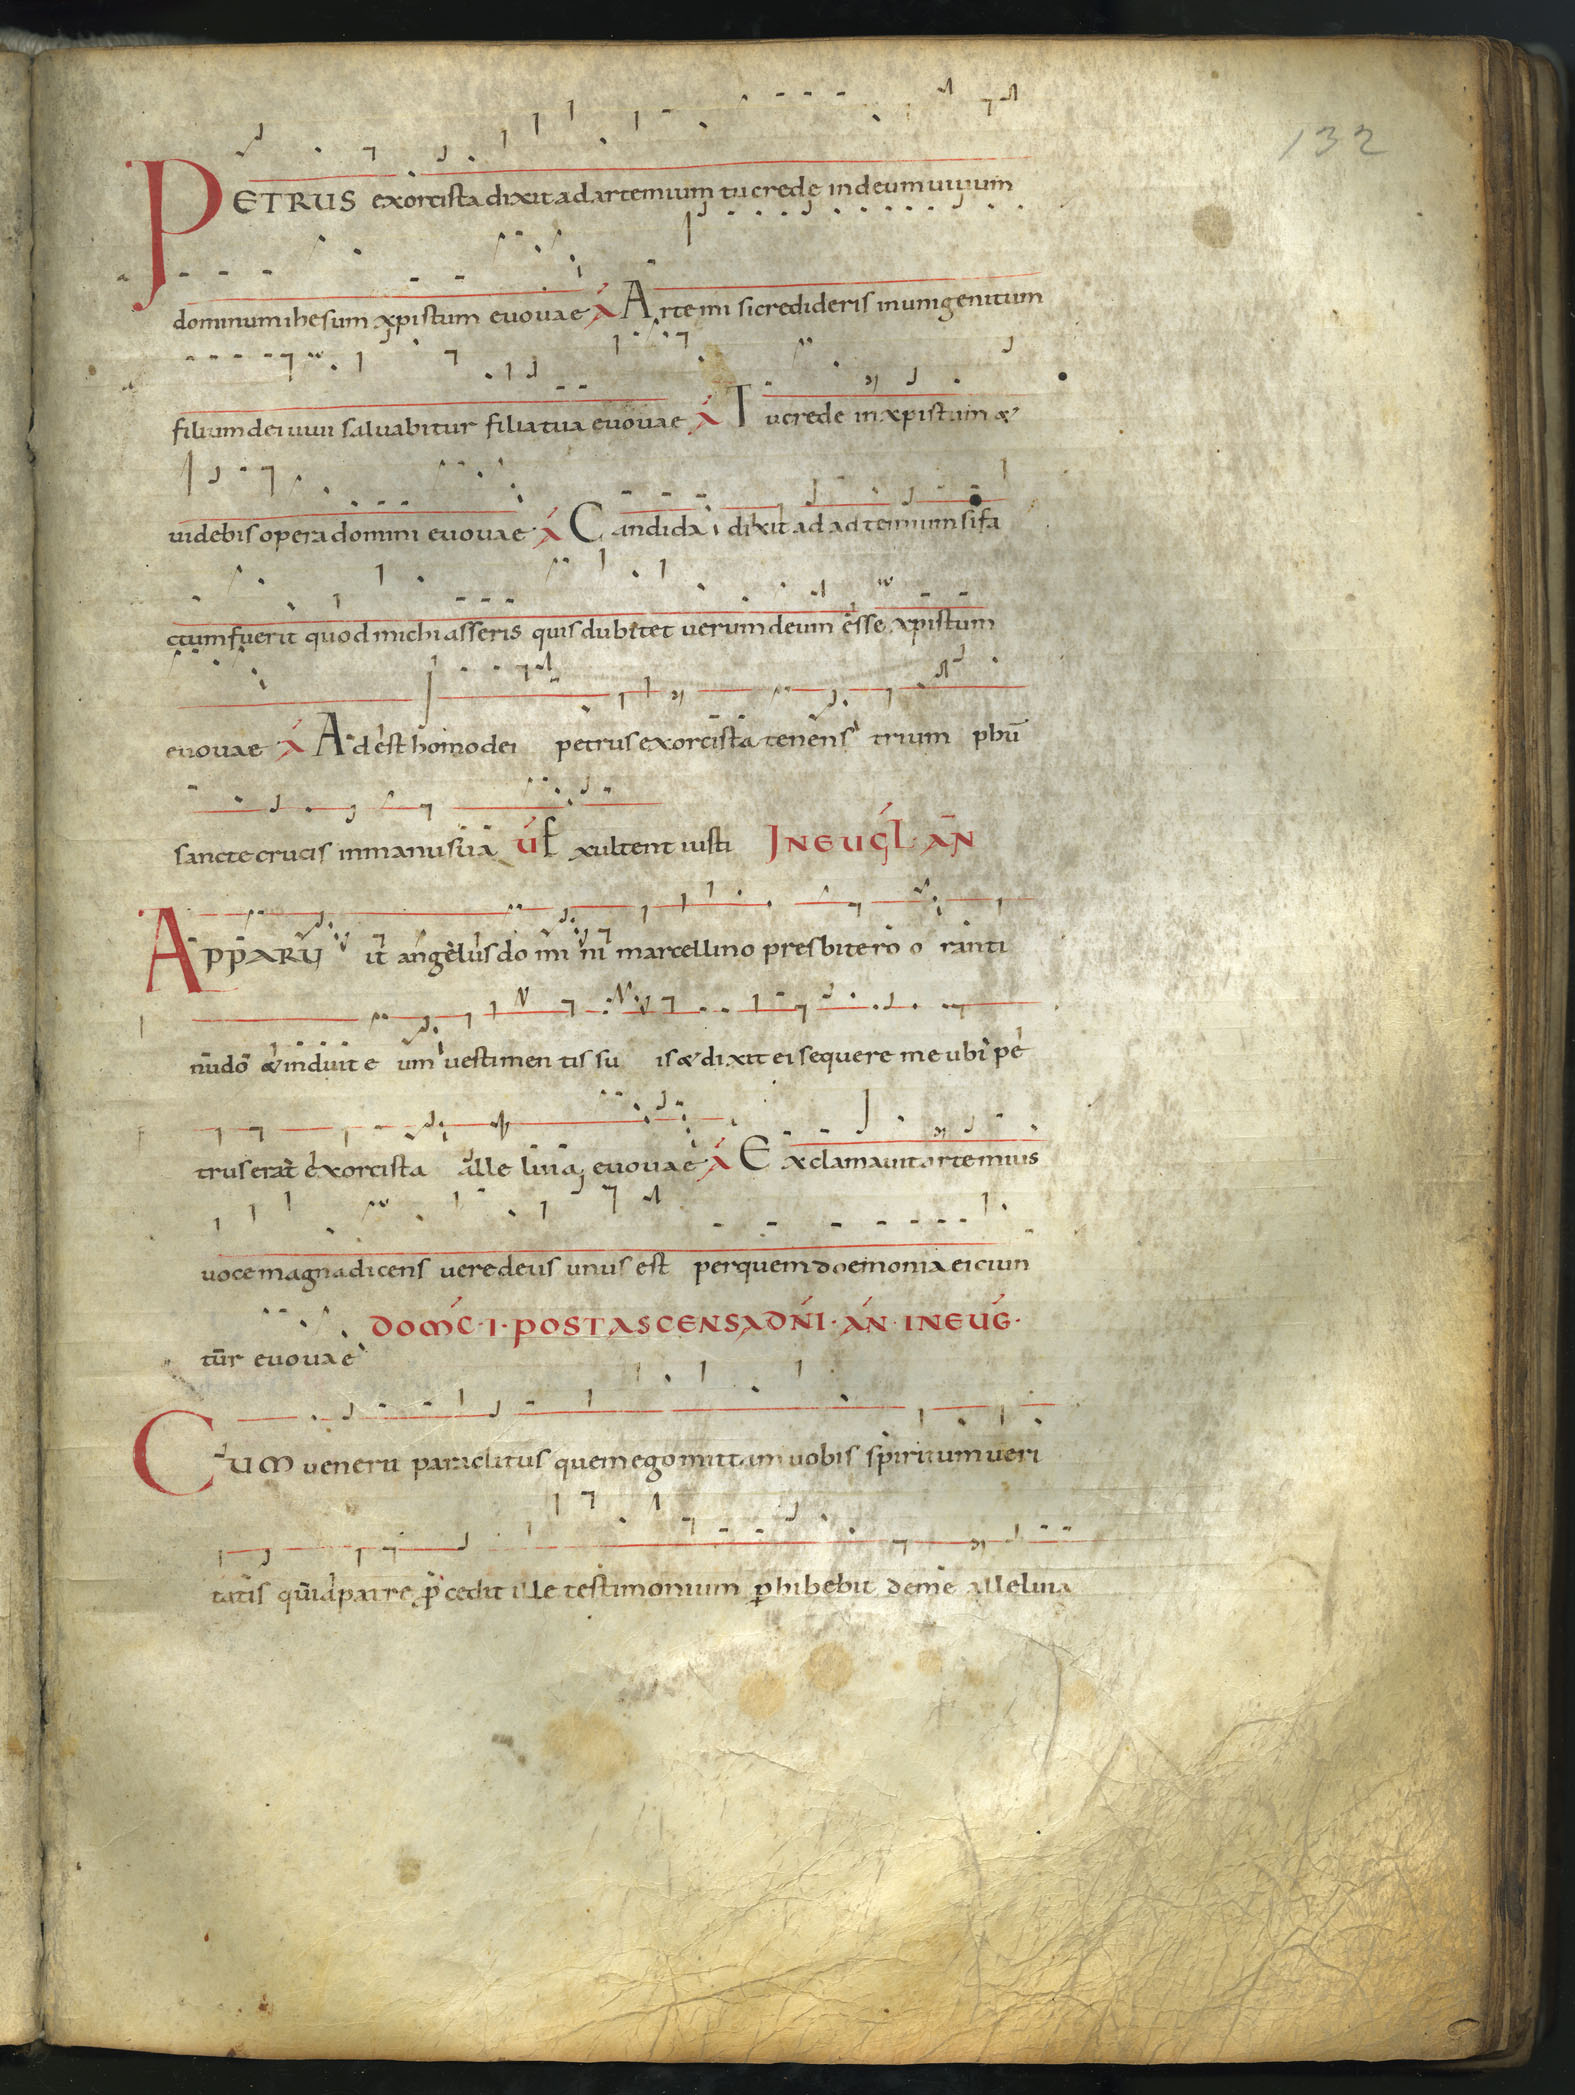 132
PETRUS exorcista dixit ad artemium tu crede in deum uiuum
dominum ihesum xpistum euouae A Artemi si credideris in unigenitum
filium dei uiui saluabitur filia tua euouae A Tu crede in xpistum &
uidebis opera domini euouae A Candida dixit ad adtemium si fa
ctum fuerit quod michi asseris quis dubitet uerum deum esse xpistum
euouae A Adest homo dei petrus exorcista tenens trium pbū
sancte crucis in manu sua V Exultent iusti IN EUGL AN
APPARUit angelus domini marcellino presbitero oranti
nudo & induit eum uestimentis suis & dixit ei sequere me ubi pe
trus erat exorcista alleluia euouae A Exclamauit artemius
uoce magna dicens uere deus unus est per quem doemonia eiciun
tur euouae DOMC I POST ASCENSA DNI AN IN EUG
CUM uenerit paraclitus quem ego mittam uobis spiritum ueri
tatis qui a patre p̄cedit ille testimonium phibebit de me alleluia